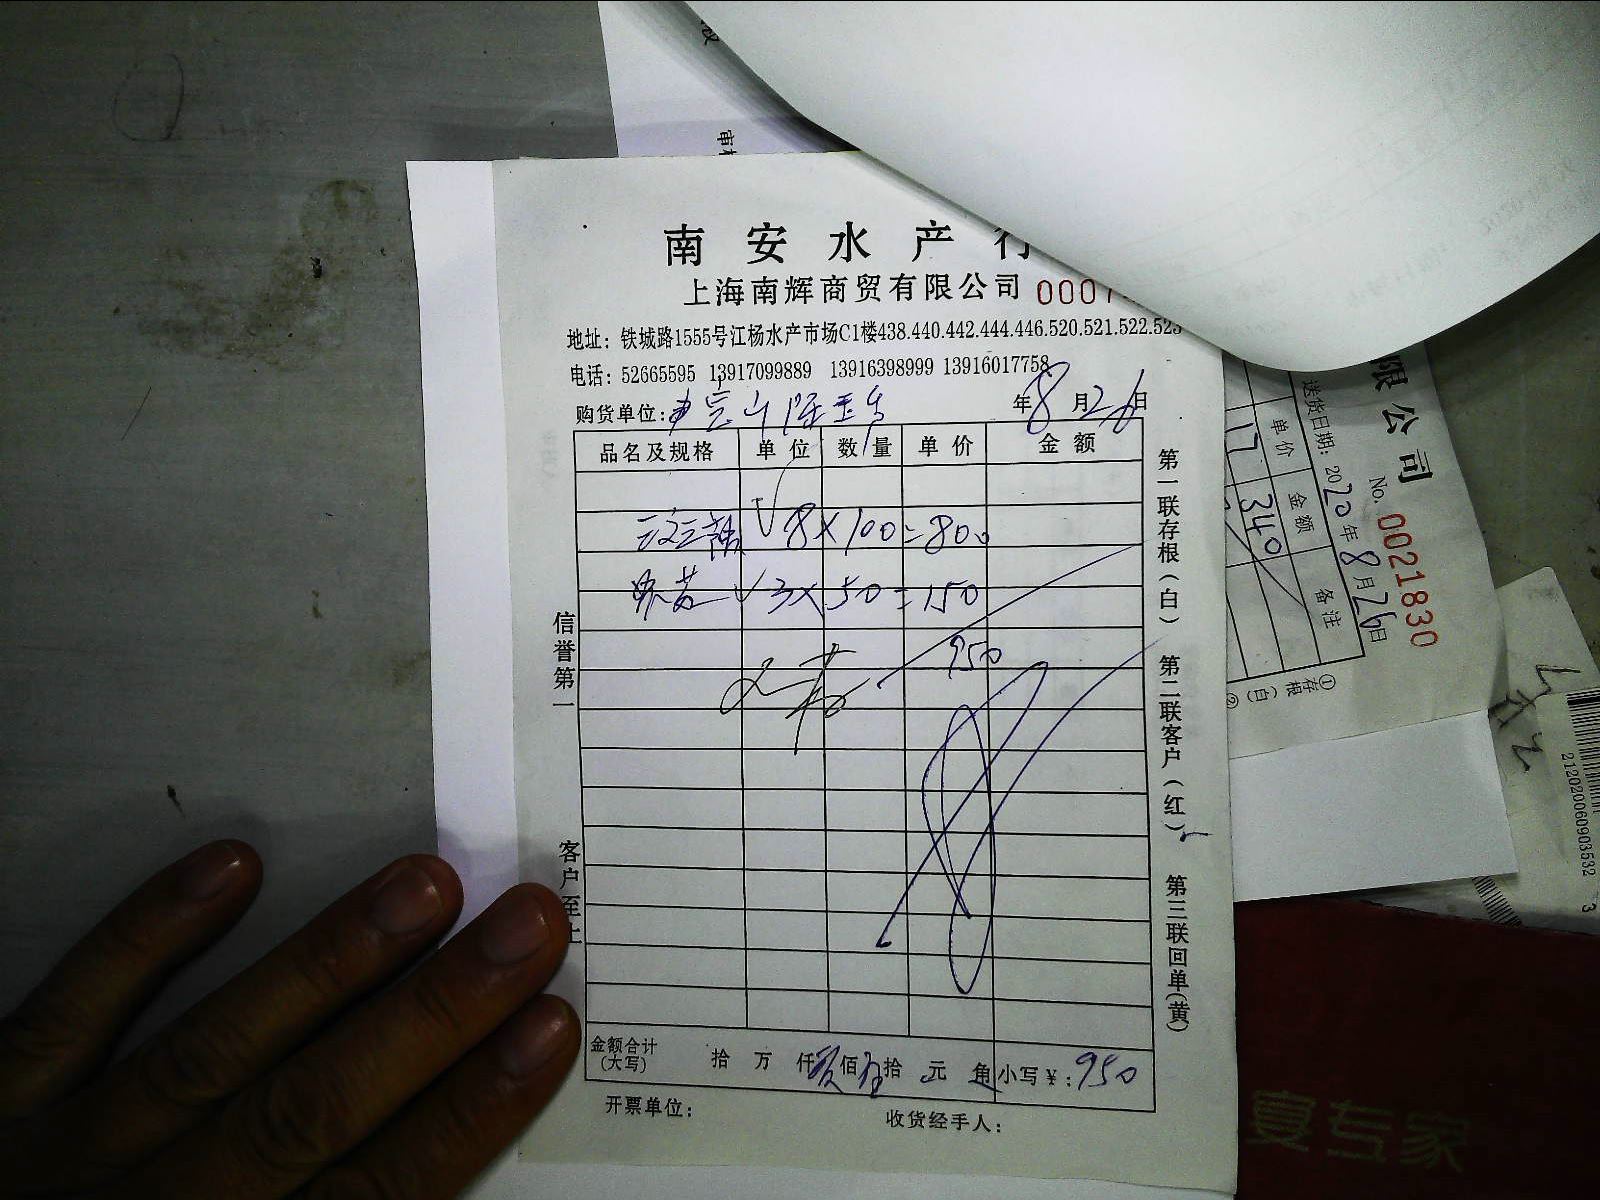 南安水产行
上海南辉商贸有限公司 0007
地址：铁城路1555号江杨水产市场C1楼438.440.442.444.446.520.521.522.523
电话：52665595 13917099889 13916398999 13916017758
购货单位： 年8月26日
品名及规格 单位 数量 单价 金额
8×100=800
3×50=150
950
金额合计(大写) 拾 万 仟 佰 拾 元 角 小写￥：950
开票单位： 收货经手人：
信誉第一
客户至上
第一联存根(白) 第二联客户(红) 第三联回单(黄)
限公司
No. 0021830
送货日期：2020年8月26日
单价 金额 备注
17 340
①存根(白)②
2120200609035323
宴专家